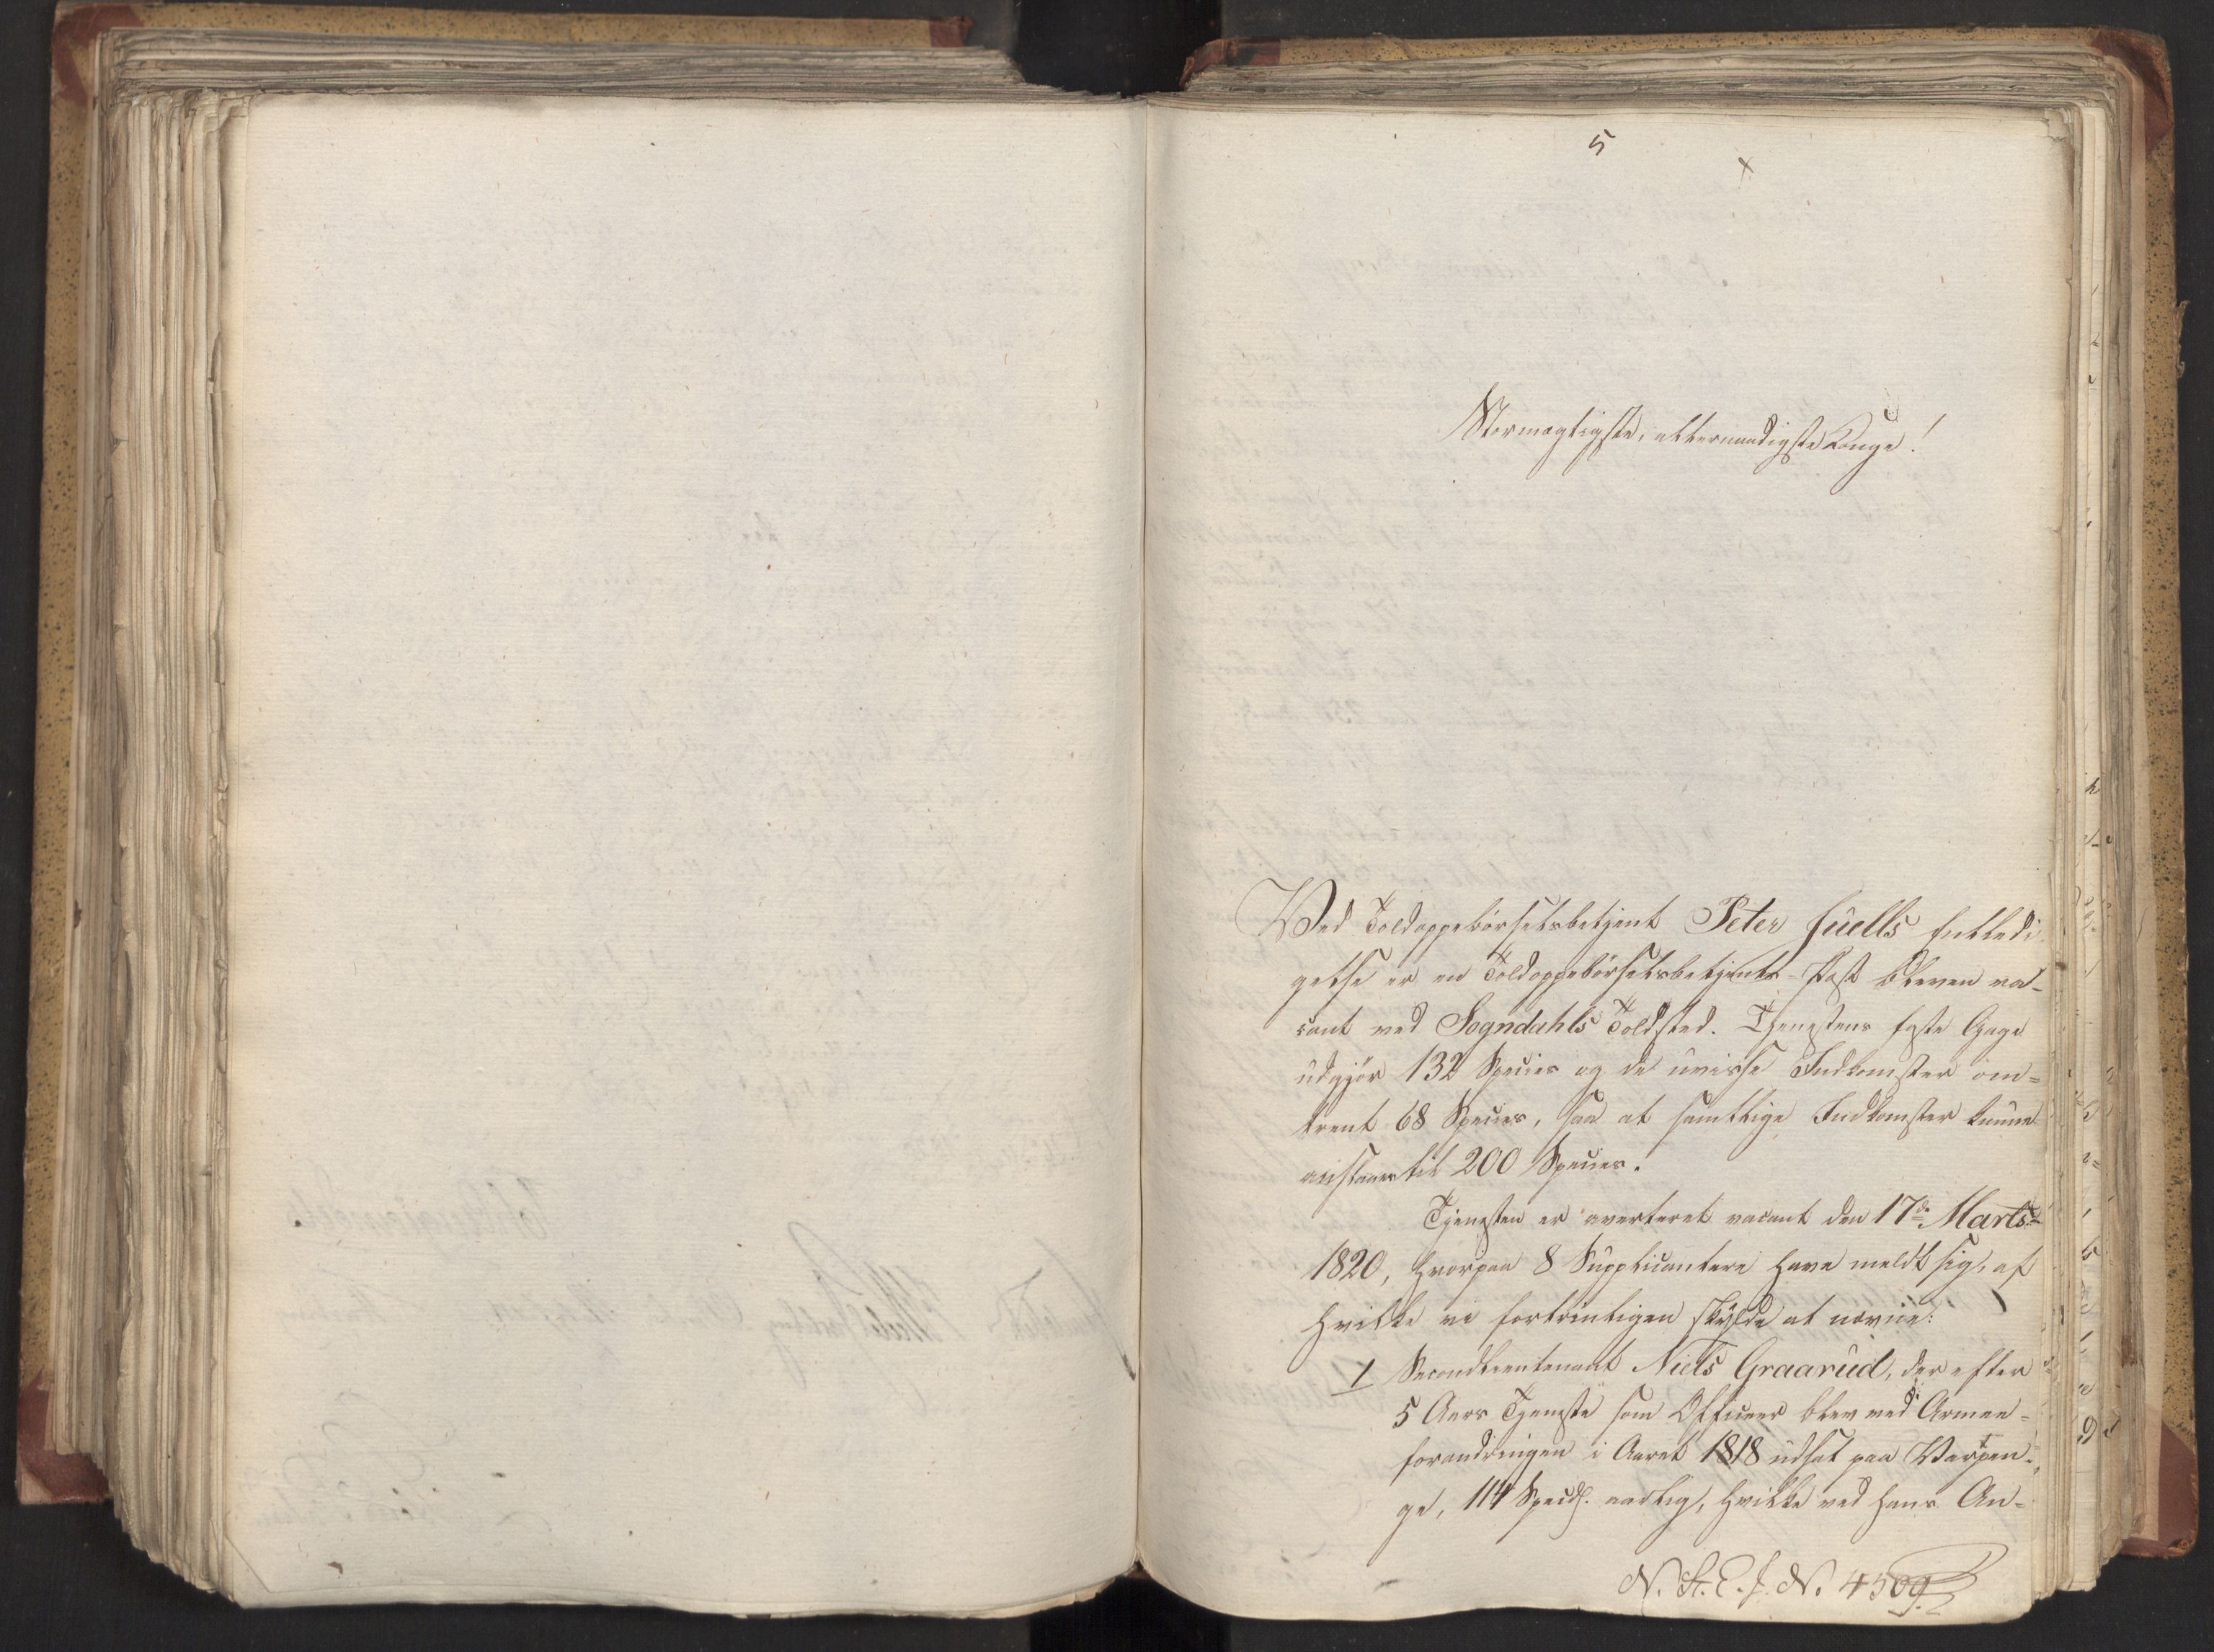 5
Stormægtigste, allernaadigste Konge!
Ved Toldoppebörselsbetjent Peter Juells Entledi-
gelse er en Toldoppebörselsbetjents-Post bleven va-
cant ved Sogndahls Toldsted. Tjenestens faste Gage
udgjör 132 Species og de uvisse Indkomster om-
trent 68 Species, saa at samtlige Indkomster kunne
anslaaes til 200 Species.
Tjenesten er averteret vacant den 17de Marts
1820, hvorpaa 8 Supplicantere have meldt sig, af
hvilke vi fortrinligen skylde at nævne:
1 Secondlieutenant Niels Graarud, der efter
5 Aars Tjeneste som Officeer blev ved Armee-
forandringen i Aaret 1818 udsat paa Vartpen-
ge, 114 Specd. aarlig, hvilke ved hans An-
N. St. E. J. N. 4509